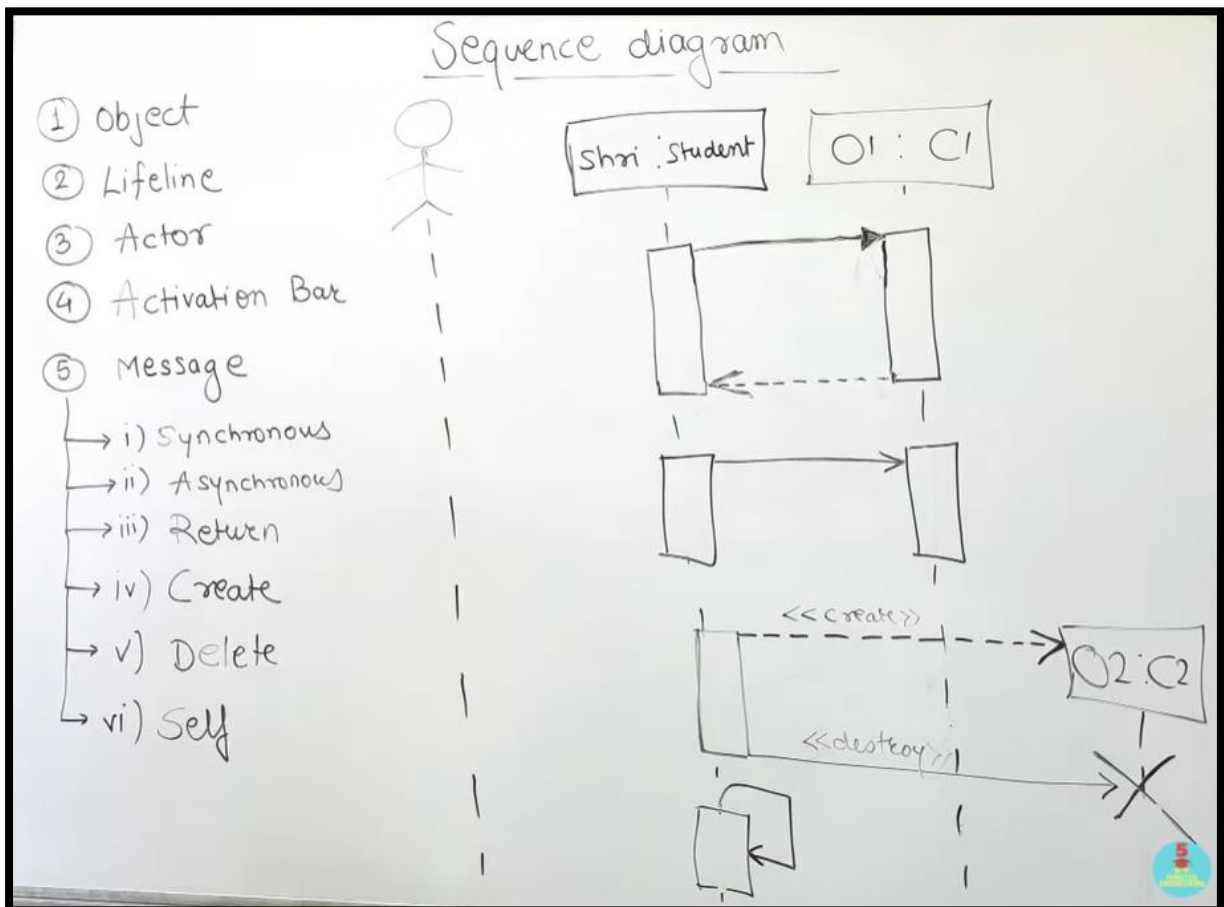 Sequence diagram
1 Object
2 Lifeline
3 Actor
4 Activation Bar
5 Message
i) Synchronous
ii) Asynchronous
iii) Return
iv) Create
v) Delete
vi) Self
Shri : Student
O1 : C1
<<create>>
O2 : C2
<<destroy>>
5
MINUTES
ENGINEERING